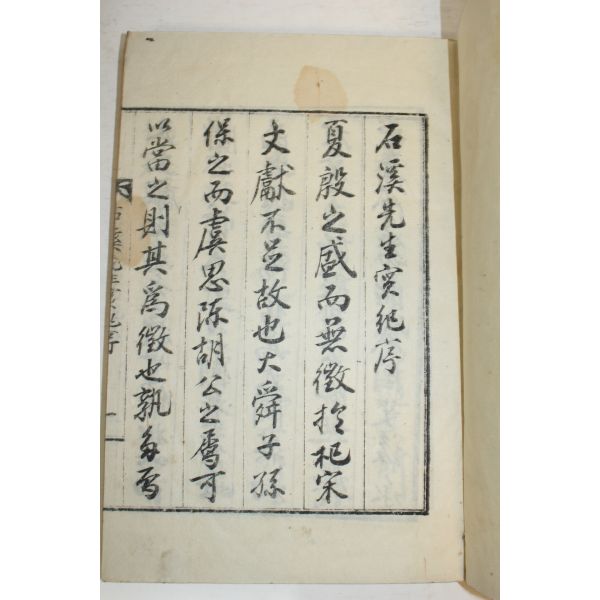 石溪先生實紀序
夏殷之盛而無徵於杞宋
文獻不足故也大舜子孫
保之而虞思陳胡公之焉可
以當之則其爲徵也孰多焉
石溪先生實紀序 一